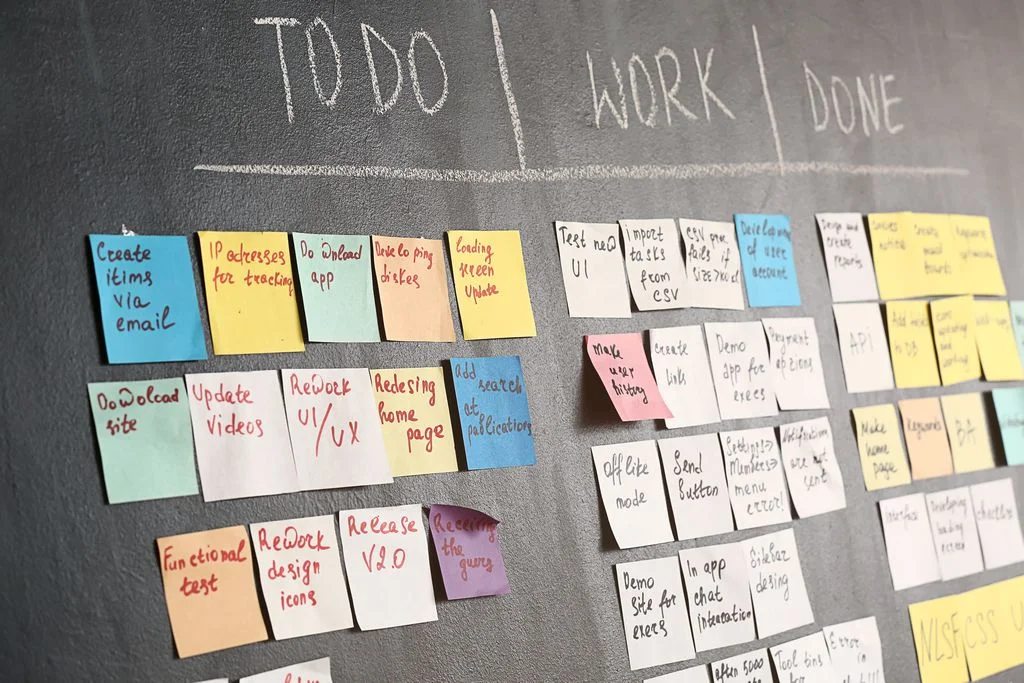 TODO
WORK
DONE
Create
itims
via
email
IP adresses
for tracking
Do Wnload
app
Develo ping
diskes
Loading
screen
Update
Do Woload
site
Update
Videos
ReWork
UI/UX
Redesing
home
page
Add
search
at
publications
Functional
test
ReWork
design
icons
Release
V2.0
Receiving
the
query
Test new
UI
import
tasks
from
CSV
CSV
fails if
Develop
of user
account
Make
user
history
Create
links
Demo
app for
execs
Payment
options
Offlike
mode
Send
button
Settings>
Members>
menu
error!
Notifications
are not
sent
Demo
site for
exers
In app
chat
interaction
Sidebar
desing
often 5,000
Tool tins
Error in
Design and
create
reports
API
Make
home
page
Keywords
BA
Interface
Developing
loading
screen
checklist
NLSF
CSS